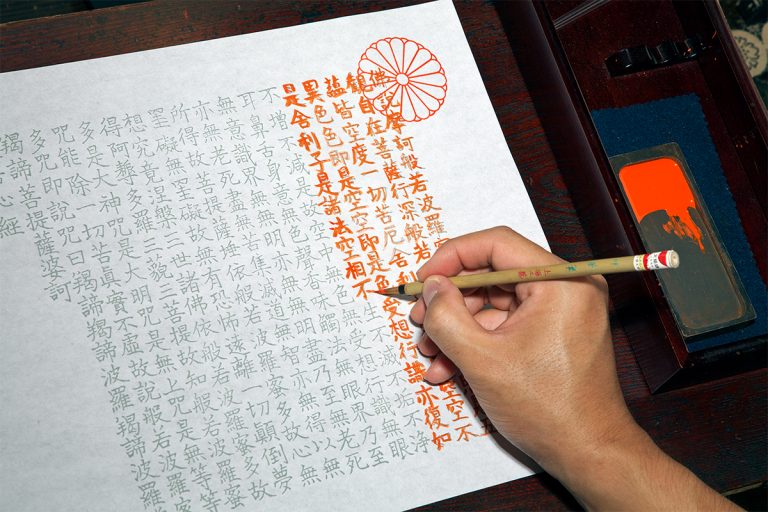 佛說摩訶般若波羅
觀自在菩薩行深般若五
蘊皆空度一切苦厄舍利空空不
異色色即是空空即是色受想行識亦復如
是舍利子是諸法空相不生不滅不垢不淨
不增不減是故空中無色無受想行識無眼
耳鼻舌身意無色聲香味觸法無眼界乃至
無意識界無無明亦無無明盡乃至無老死
亦無老死盡無苦集滅道無智亦無得以無
所得故菩提薩埵依般若波羅蜜多故心無
罣礙無罣礙故無有恐怖遠離一切顛倒夢
想究竟涅槃三世諸佛依般若波羅蜜多故
得阿耨多羅三藐三菩提故知般若波羅蜜
多是大神咒是大明咒是無上咒是無等等
咒能除一切苦眞實不虛故說般若波羅蜜
多咒即說咒曰羯諦羯諦波羅羯諦波羅
羯諦菩提薩婆訶
心經